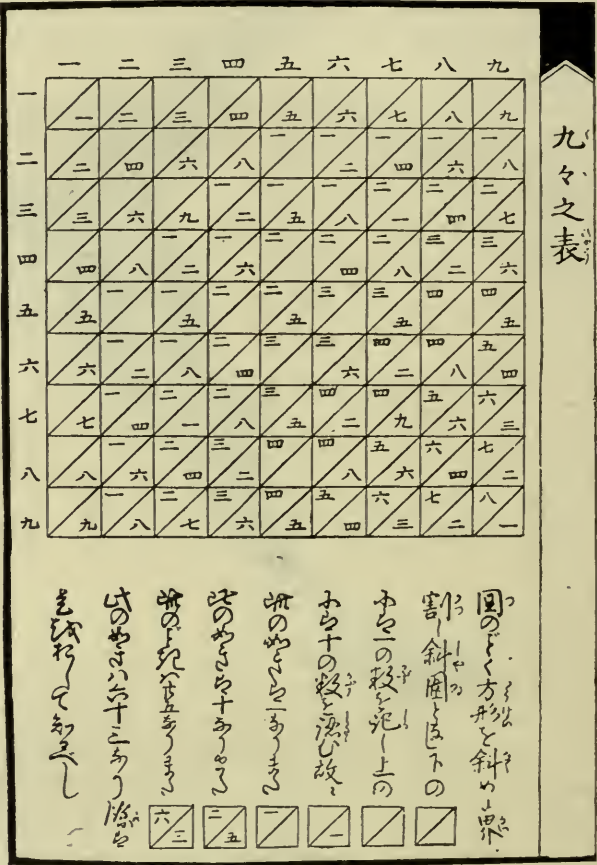 九々之表
一 二 三 四 五 六 七 八 九
一 一 二 三 四 五 六 七 八 九
二 二 四 六 八 一 一二 一四 一六 一八
三 三 六 九 一二 一五 一八 二一 二四 二七
四 四 八 一二 一六 二 二四 二八 三二 三六
五 五 一 一五 二 二五 三 三五 四 四五
六 六 一二 一八 二四 三 三六 四二 四八 五四
七 七 一四 二一 二八 三五 四二 四九 五六 六三
八 八 一六 二四 三二 四 四八 五六 六四 七二
九 九 一八 二七 三六 四五 五四 六三 七二 八一
図のごとく方形を斜めに界
割し斜 下の
一の数を記し上の
十の数を 故に
此の如きは一なり
此の如きは十なり
此の 二五なり
此の如きは六十三なり
て知るべし
一
一
二五
六三